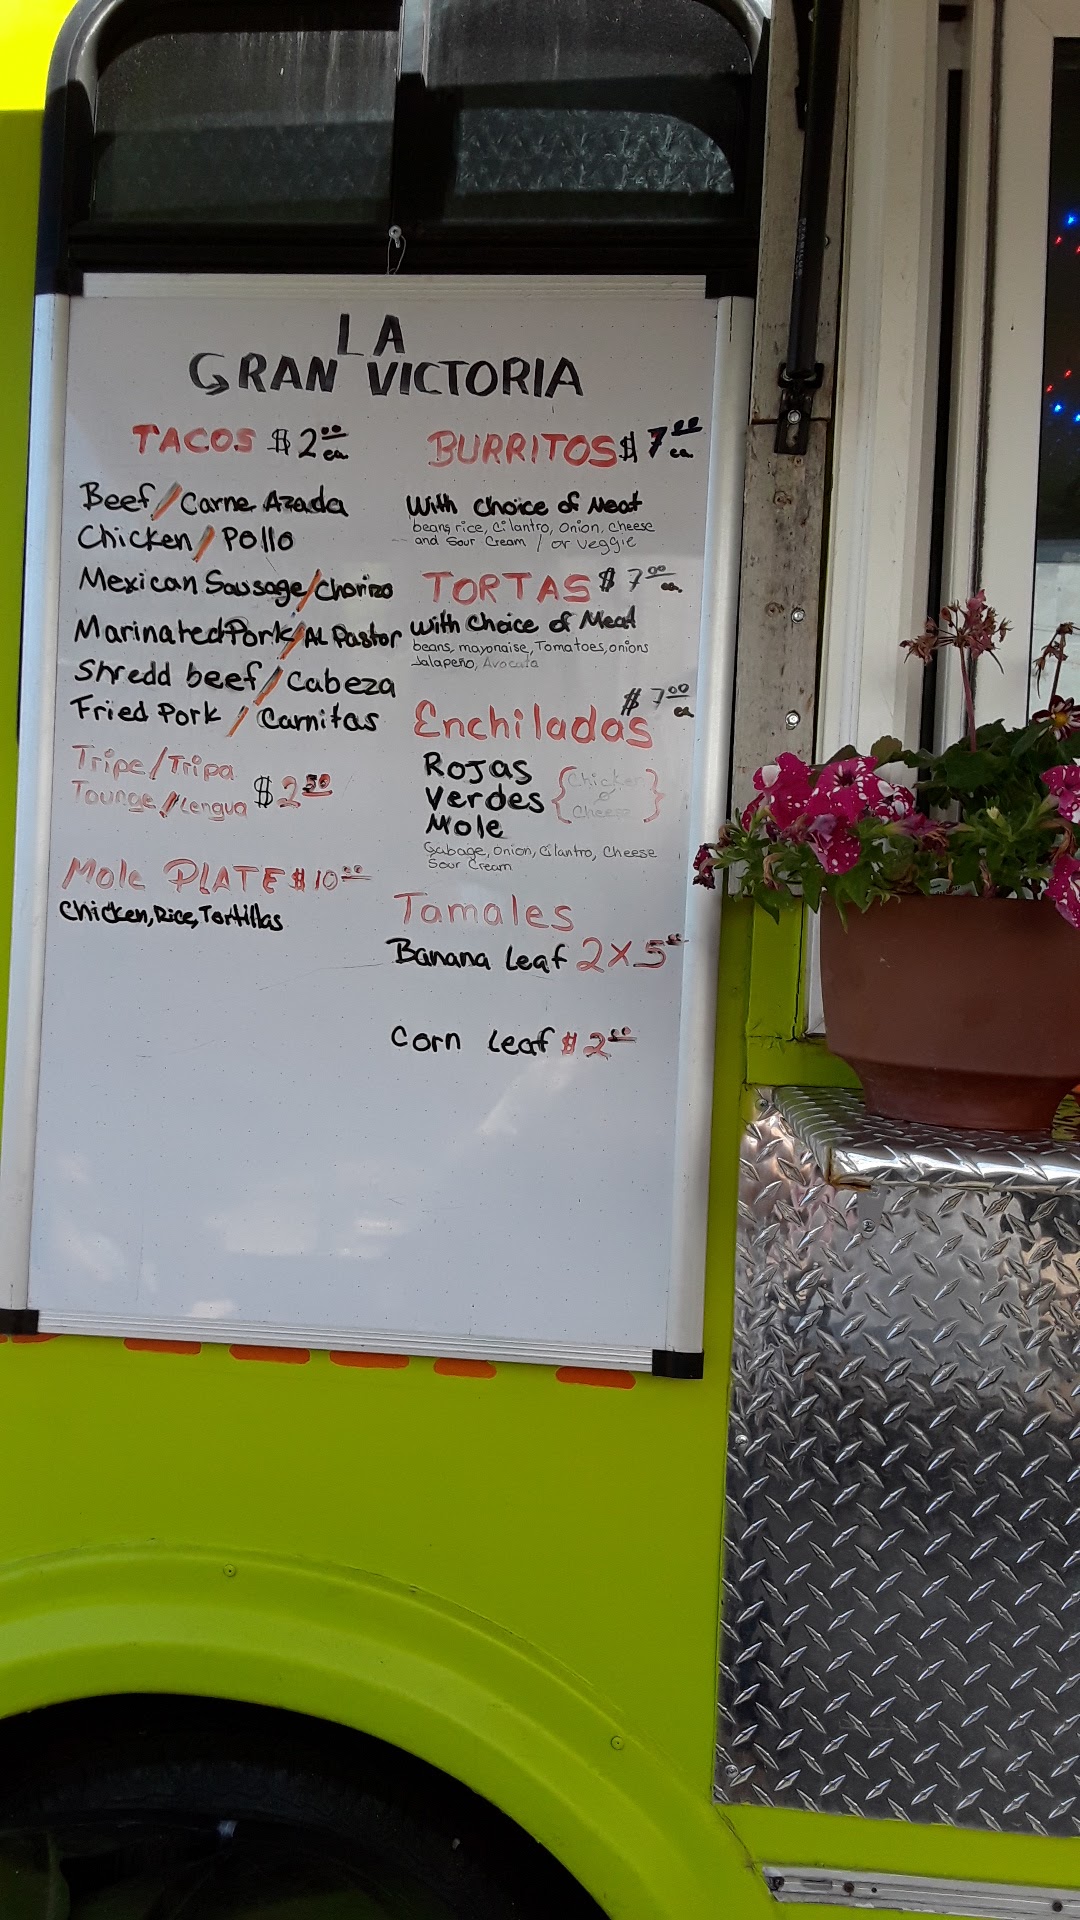 LA
GRAN VICTORIA
TACOS $2.00 ea
Beef/Carne Azada
Chicken/Pollo
Mexican Sausage/Chorizo
Marinated Pork/AL Pastor
Shredd beef/Cabeza
Fried Pork/Carnitas
Tripe/Tripa
Tounge/Lengua $2.50
Mole PLATE $10.00
Chicken, Rice, Tortillas
BURRITOS $7.00 ea
With Choice of Meat
beans, rice, Cilantro, Onion, Cheese
and Sour Cream / or Veggie
TORTAS $7.00 ea
With Choice of Meat
beans, mayonaise, Tomatoes, onions
Jalapeño, Avocata
$7.00 ea
Enchiladas
Rojas
Verdes {Chicken o Cheese}
Mole
Gabage, Onion, Cilantro, Cheese
Sour Cream
Tamales
Banana Leaf 2X5.00
Corn Leaf $2.00